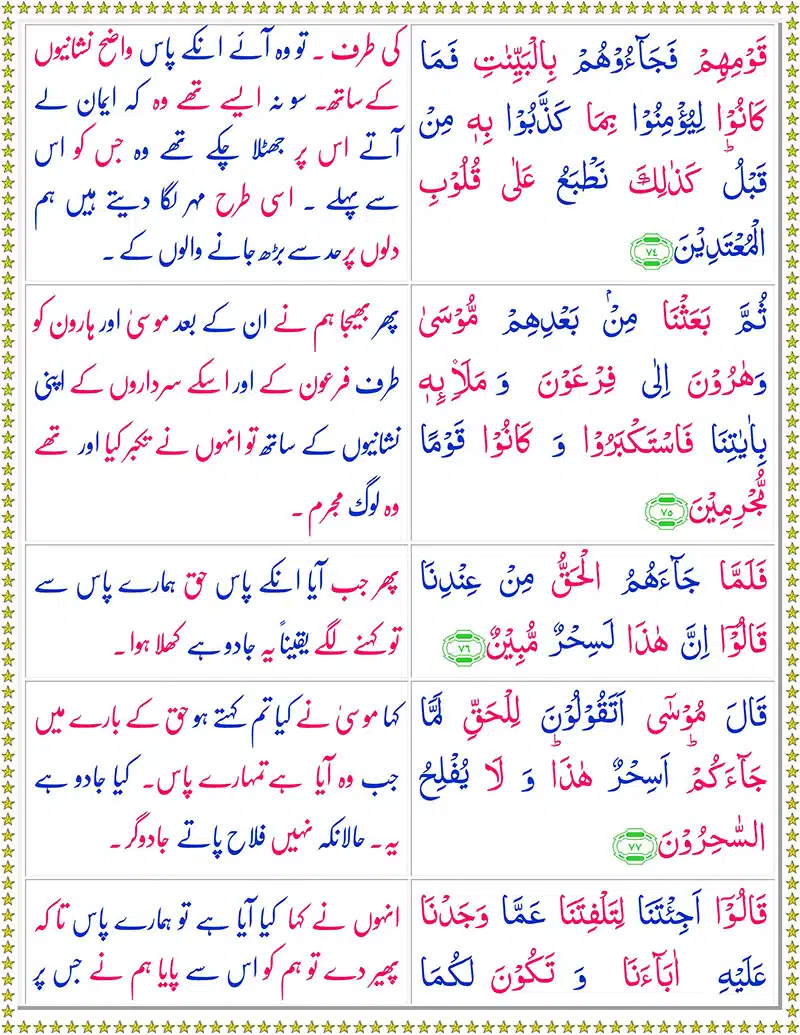 قَوْمِهِمْ فَجَآءُوْهُمْ بِالْبَيِّنٰتِ فَمَا
كَانُوْا لِيُؤْمِنُوْا بِمَا كَذَّبُوْا بِهٖ مِنْ
قَبْلُ ؕ كَذٰلِكَ نَطْبَعُ عَلٰى قُلُوْبِ
الْمُعْتَدِيْنَ ﴿٧٤﴾
کی طرف ۔ تو وہ آئے انکے پاس واضح نشانیوں
کے ساتھ۔ سو نہ ایسے تھے وہ کہ ایمان لے
آتے اس پر جھٹلا چکے تھے وہ جس کو اس
سے پہلے ۔ اسی طرح مہر لگا دیتے ہیں ہم
دلوں پر حد سے بڑھ جانے والوں کے ۔
ثُمَّ بَعَثْنَا مِنْۢ بَعْدِهِمْ مُّوْسٰى
وَهٰرُوْنَ اِلٰى فِرْعَوْنَ وَ مَلَا۟ئِهٖ
بِاٰيٰتِنَا فَاسْتَكْبَرُوْا وَ كَانُوْا قَوْمًا
مُّجْرِمِيْنَ ﴿٧٥﴾
پھر بھیجا ہم نے ان کے بعد موسیٰ اور ہارون کو
طرف فرعون کے اور اسکے سرداروں کے اپنی
نشانیوں کے ساتھ تو انہوں نے تکبر کیا اور تھے
وہ لوگ مجرم ۔
فَلَمَّا جَآءَهُمُ الْحَقُّ مِنْ عِنْدِنَا
قَالُوْۤا اِنَّ هٰذَا لَسِحْرٌ مُّبِيْنٌ ﴿٧٦﴾
پھر جب آیا انکے پاس حق ہمارے پاس سے
تو کہنے لگے یقیناً یہ جادو ہے کھلا ہوا ۔
قَالَ مُوْسٰۤى اَتَقُوْلُوْنَ لِلْحَقِّ لَمَّا
جَآءَكُمْ ؕ اَسِحْرٌ هٰذَا ؕ وَ لَا يُفْلِحُ
السّٰحِرُوْنَ ﴿٧٧﴾
کہا موسیٰ نے کیا تم کہتے ہو حق کے بارے میں
جب وہ آیا ہے تمہارے پاس۔ کیا جادو ہے
یہ ۔ حالانکہ نہیں فلاح پاتے جادوگر ۔
قَالُوْۤا اَجِئْتَنَا لِتَلْفِتَنَا عَمَّا وَجَدْنَا
عَلَيْهِ اٰبَآءَنَا وَ تَكُوْنَ لَكُمَا
انہوں نے کہا کیا آیا ہے تو ہمارے پاس تاکہ
پھیر دے تو ہم کو اس سے پایا ہم نے جس پر